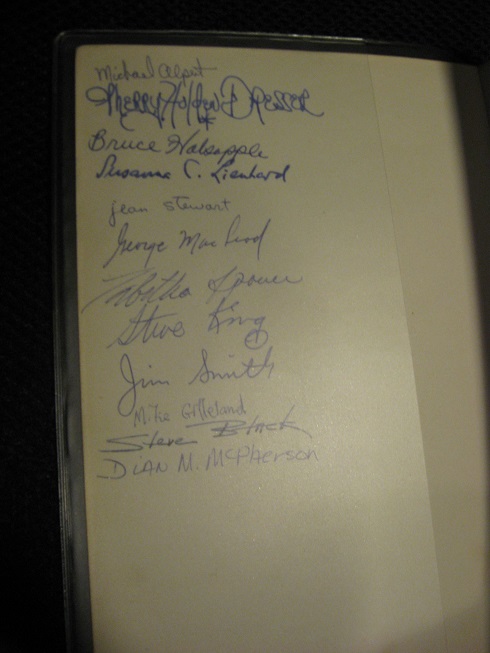 Michael Alpert
Merry Holden Dresser
Bruce Holsapple
Susanna C. Lienhard
jean stewart
George MacLeod
Tabitha Spruce
Steve King
Jim Smith
Mike Gilleland
Steve Black
DIAN M. McPHERSON